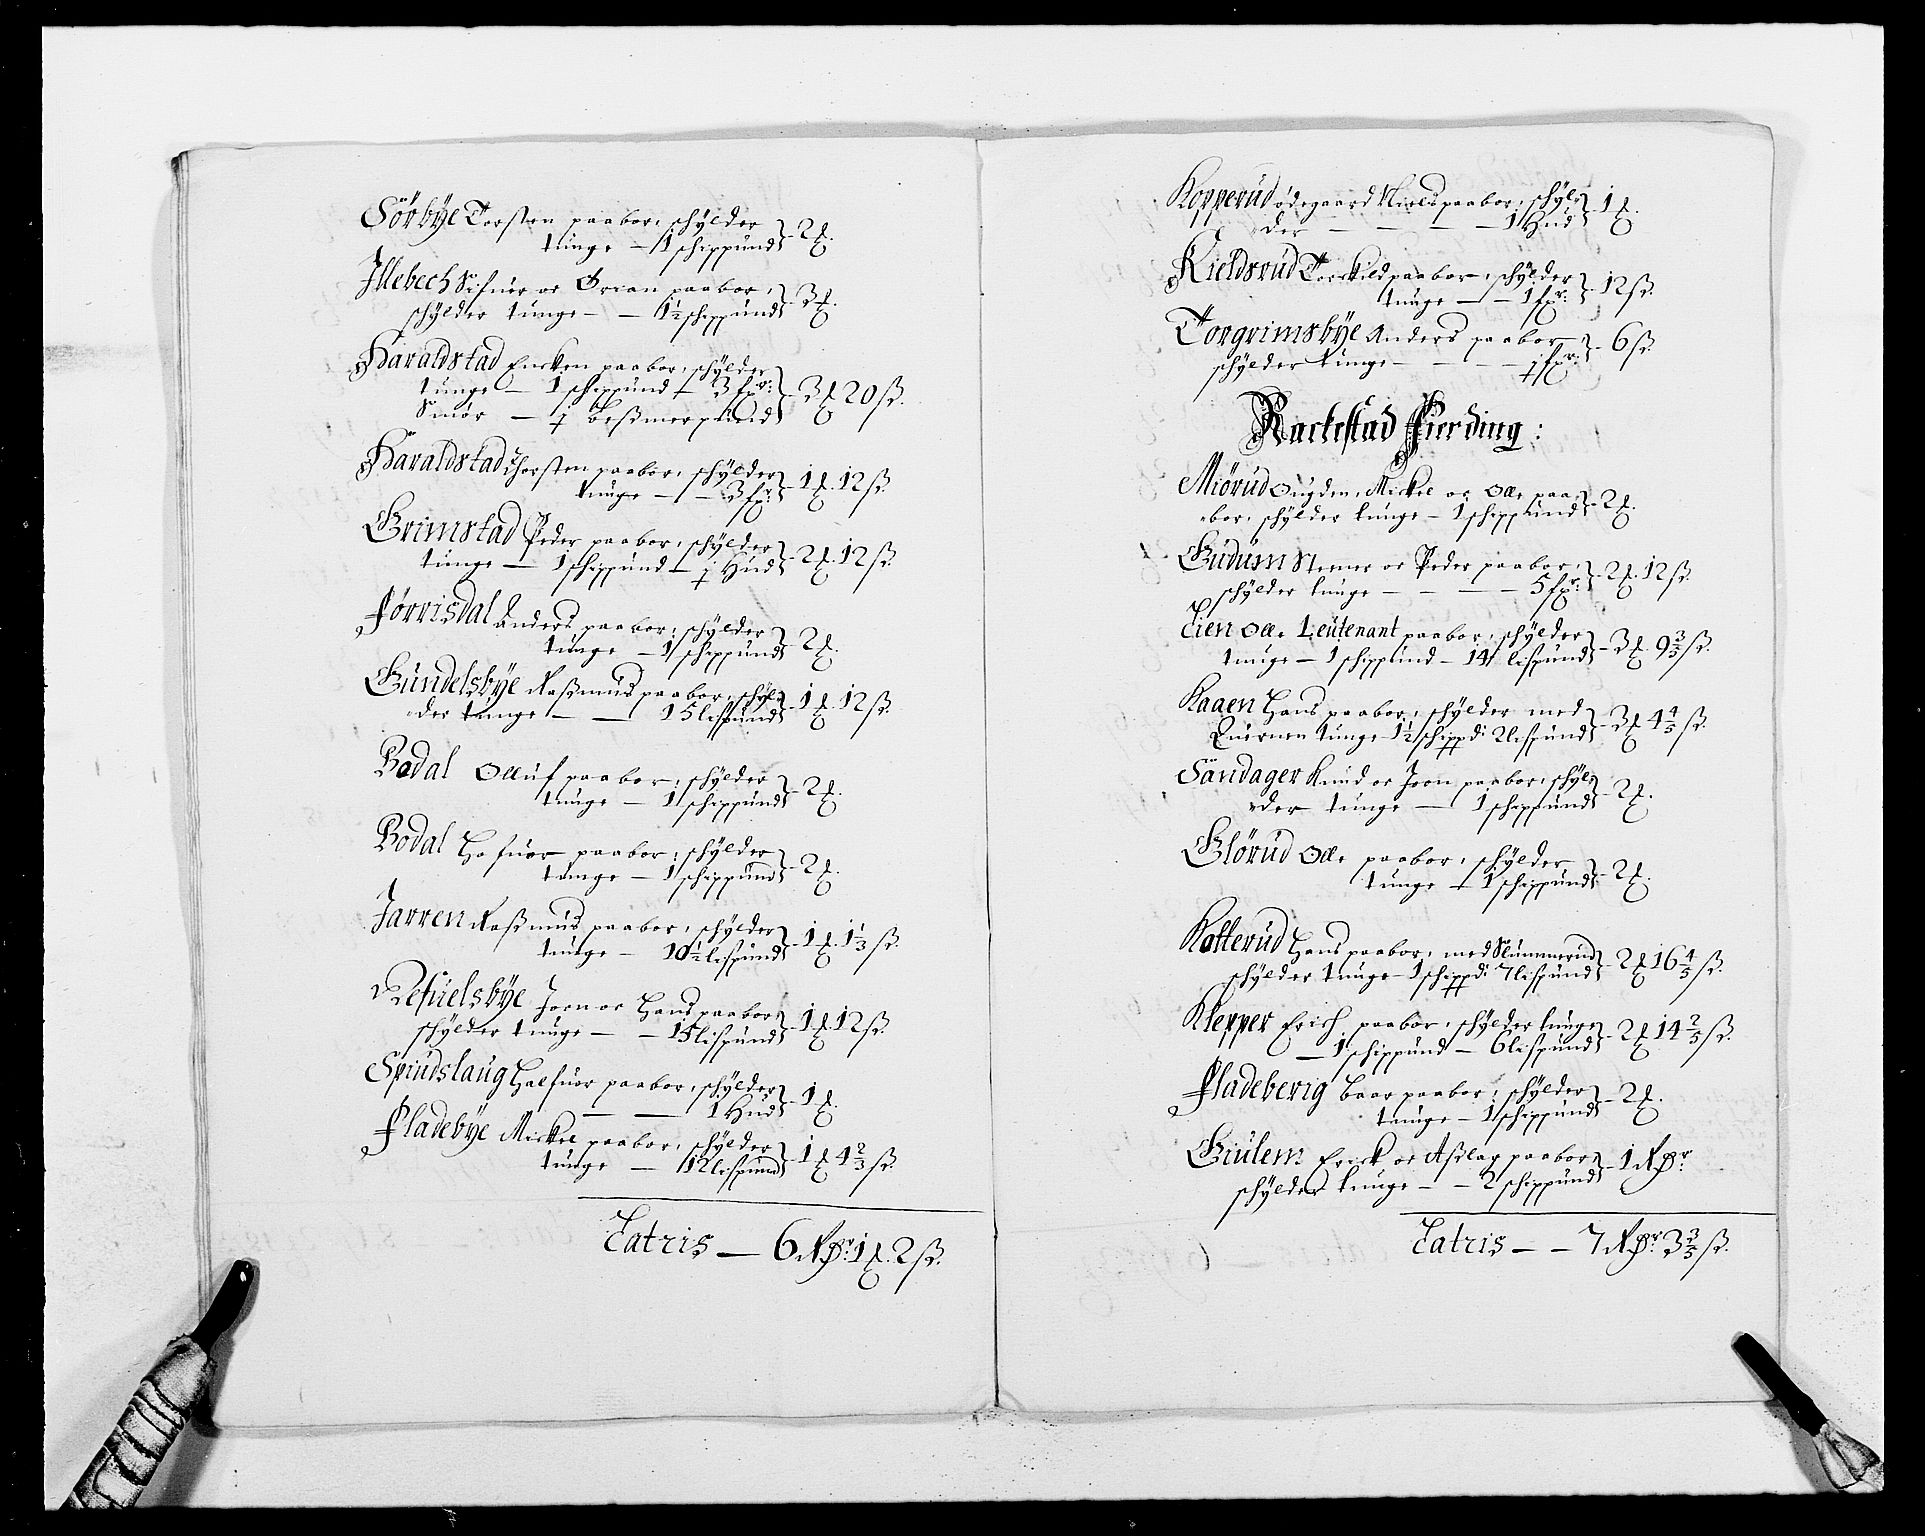 Sörbÿe Torsten paabor, schÿlder
tunge — 1 schippund - 2 ₰.
Illebech Sifuer oc Örian paabor,
schÿlder tunge - - 1½ schippund - 3 ₰.
Haraldstad Encken paabor, schÿlder
tunge — 1 schippund — 3 fxr:
Smör — ƚ beßmerpund - 3 ₰ 20 ß.
Haraldstad Thorsten paabor, schÿlder
tunge — - 3 fxr: - 1 ₰. 12 ß.
Grimstad Peder paabor, schÿlder
tunge — 1 schippund — ƚ Hud - 2 ₰. 12 ß.
Förrisdal Anders paabor, schÿlder
tunge — 1 schippund - 2 ₰.
Gundelsbÿe Raßmus paabor, schÿl-
der tunge — — 15 lispund - 1 ₰. 12 ß.
Bodal Olluf paabor, schÿlder
tunge — 1 schippund - 2 ₰.
Bodal Hafuor paabor, schÿlder
tunge — 1 schippund - 2 ₰.
Jarren Raßmus paabor, schÿlder
tunge — 10½ lispund - 1 ₰. 1⅓ ß.
Refuelsbÿe Joen oc Hans paabor,
schÿlder tunge — - 15 lispund - 1 ₰ 12 ß.
Spiudslaug Halfuor paabor, schÿlder
— — 1 Hud - 1 ₰.
Fladebÿe Mickel paabor, schÿlder
tunge — 12 lispund - 1 ₰ 4⅔ ß.
Latris — 6 Rdr. 1 ₰. 2 ß.
Kopperud ödegaard Niels paabor, schÿl-
der — — — — 1 Hud - 1 ₰.
Kieldsrud Torckild paabor, schÿlder
tunge — - 1 fxr: - 12 ß.
Torgrimsbÿe Anders paabor
schÿlder tunge - - - - ƚ fxr: - 6 ß.
Rackestad Fierding:
Miörud Ougden, Mickel oc Olle paa-
bor, schÿlder tunge - 1 schippund - 2 ₰.
Gudum Stener oc Peder paabor,
schÿlder tunge - - - - 5 fxr: - 2 ₰. 12 ß.
Lien Olle Leutenant paabor, schÿlder
tunge — 1 schippund - 14 lispund - 3 ₰. 9⅗ ß.
Kaaen Hans paabor, schÿlder med
Quernen tunge 1½ schippd: 2 lispund - 3 ₰ 4⅘ ß.
Sandager Knud oc Joen paabor, schÿl-
der tunge — 1 schippund - 2 ₰.
Glörud Olle paabor, schÿlder
tunge — 1 schippund - 2 ₰.
Katterud Hans paabor, med Slummerud
schÿlder tunge - 1 schippd: 7 lispund - 2 ₰ 16⅘ ß.
Klepper Erich paabor, schÿlder tunge
— 1 schippund — 6 lispund - 2 ₰ 14⅖ ß.
Fladeberig Baar paabor, schÿlder
tunge — 1 schippund - 2 ₰.
Giulem Erick oc Aßlag paabor
schÿlder tunge - - 2 schippund - 1 Rdr
Latris — - 7 Rdr. 3⅗ ß.